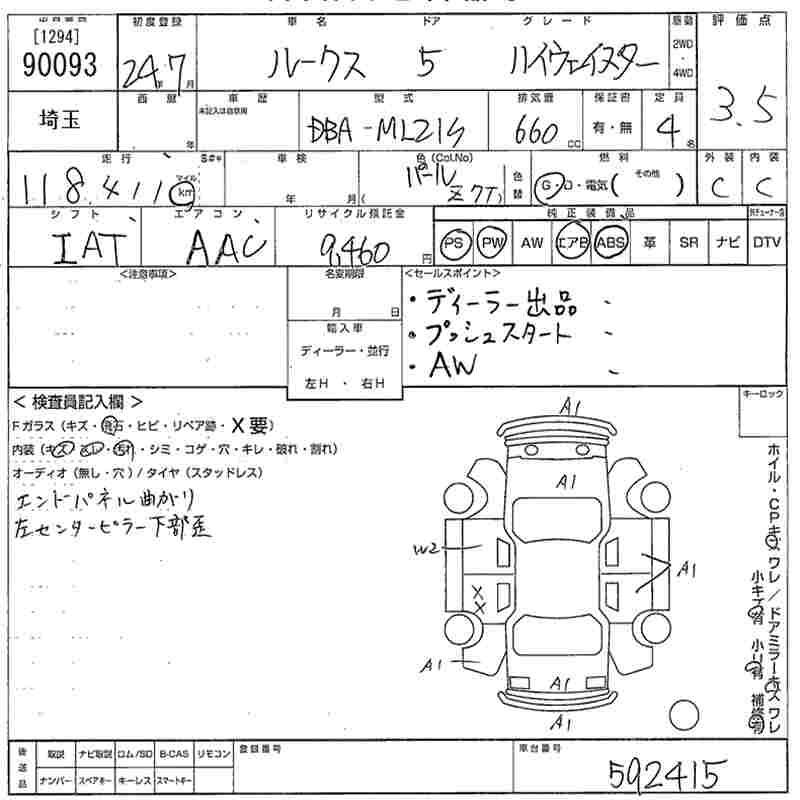 出品番号 初度登録 車名 ドア グレード 駆動 評価点
[1294]
90093 24年7月 ルークス 5 ハイウェイスター 2WD・4WD 3.5
埼玉 西暦 年 車歴 未記入は自家用 型式 排気量 保証書 定員
DBA-ML21S 660CC 有・無 4名
走行 車検 色(Col.No) 色替 燃料 外装 内装
118411 マイル km 年 月 パール Z7T) G・D・電気( その他 ) C C
シフト エアコン リサイクル預託金 純正装備品
IAT AAC 9,460円 PS PW AW エアB ABS 革 SR ナビ DTV
<注意事項> 名変期限 <セールスポイント>
月 日 ・ディーラー出品
輸入車 ・プッシュスタート
ディーラー・並行 ・AW
左H ・ 右H
<検査員記入欄> キーロック
Fガラス(キズ・飛石・ヒビ・リペア跡・X要)
内装(キズ・スレ・汚れ・シミ・コゲ・穴・キレ・破れ・割れ)
オーディオ(無し・穴)/タイヤ(スタッドレス)
エンドパネル曲がり
左センターピラー下部歪
A1
A1
W2
A1
XX
A1
A1
A1
ホイル・CPキズ ワレ/ドアミラーキズ ワレ
小キズ有 小凹有 補修有
後送品 取説 ナビ取説 ロム/SD B-CAS リモコン 登録番号 車台番号
ナンバー スペアキー キーレス スマートキー 592415